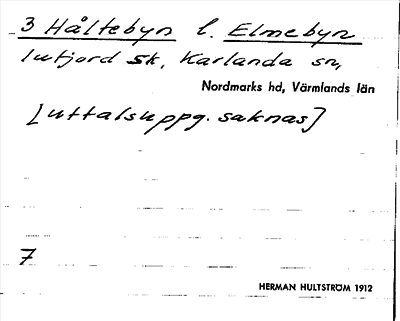 3 Håltebyn l. Elmebyn
Infjord sk, Karlanda sn,
Nordmarks hd, Värmlands län
[uttalsuppg. saknas]
7
HERMAN HULTSTRÖM 1912